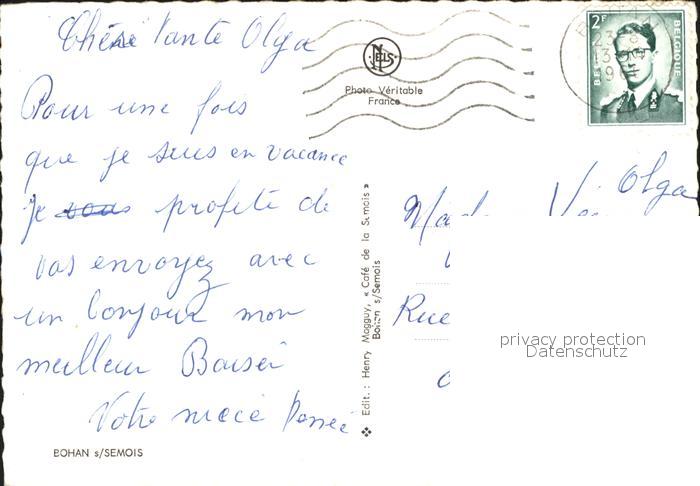 Chère Tante Olga
Pour une fois
que je suis en vacance
Je vous profite de
vas envoyez avec
un bonjour mon
meilleur Baiser
Votre niece
BOHAN s/SEMOIS
NELS
Photo Véritable
France
Edit. : Henry Magguy, « Café de la Semois »
Bohan s/Semois
2F
BELGIQUE
Olga
Rue
privacy protection
Datenschutz